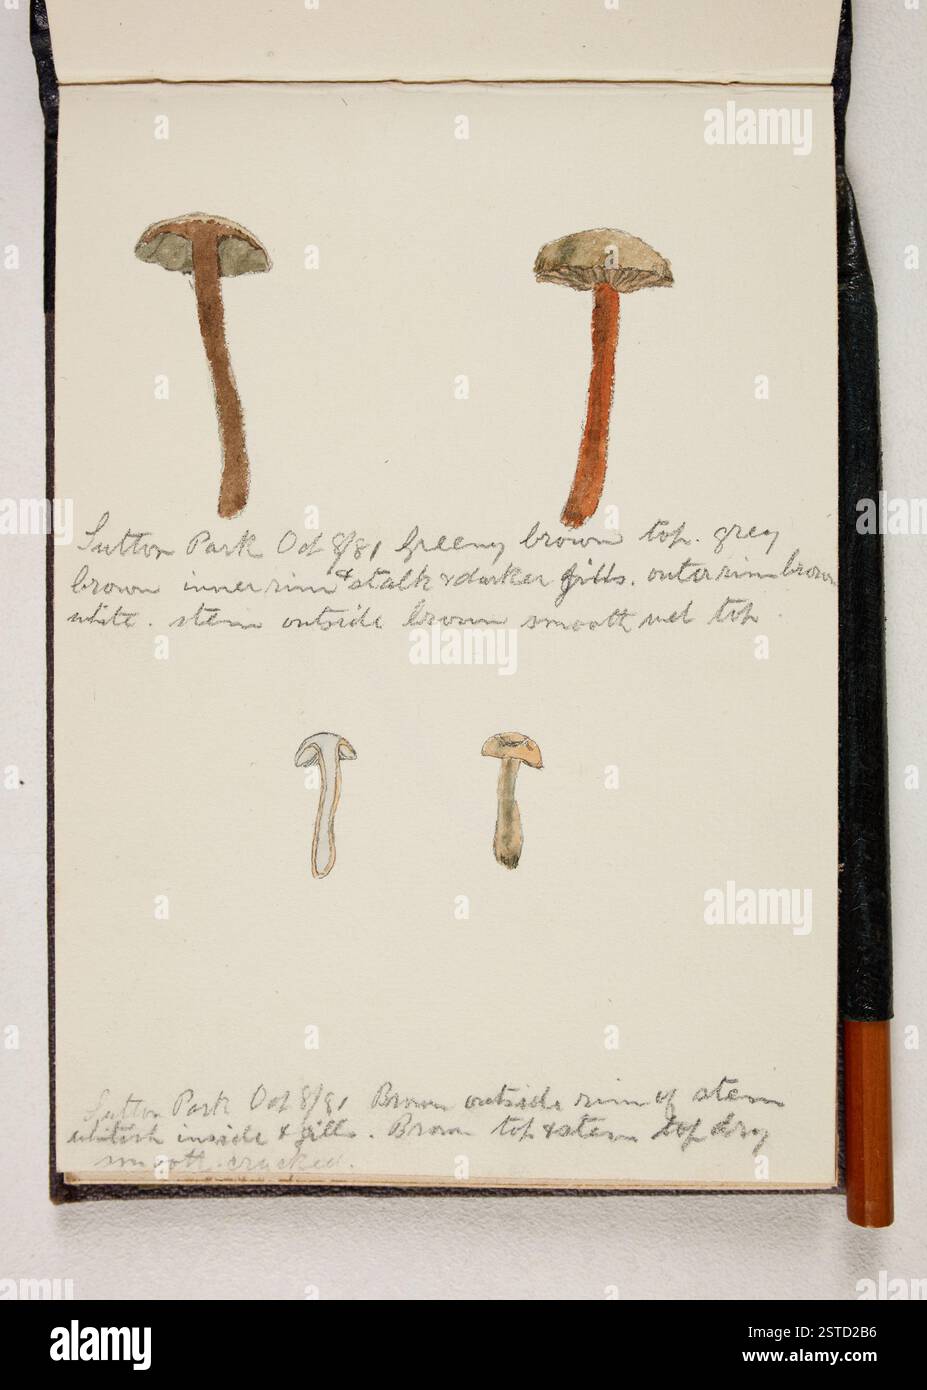 Sutton Park Oct 8/81 Greeny brown top. grey
brown inner rim & stalk & darker gills. outer rim brown
white. stem outside brown smooth wet top.
Sutton Park Oct 8/81 Brown outside rim of stem
whitish inside & gills. Brown top & stem top dry
smooth. cracked.
alamy
Image ID: 2STD2B6
www.alamy.com